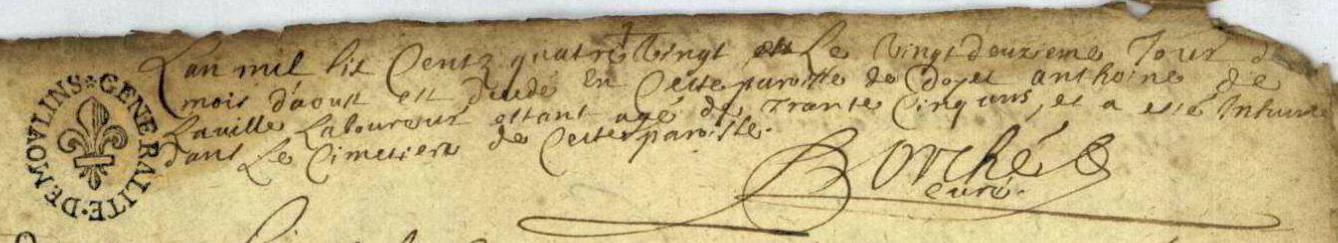 L'an mil six Centz quatre vingt et Le vingt deuxieme Jour du
mois d'aoust est decedé En Cette paroisse de Doyet anthoine de
Laville Laboureur estant agé de Trante Cinq ans, et a esté Inhumé
dans Le Cimetiere de Cette paroisse.
curé.
GENERALITE·DE·MOVLINS